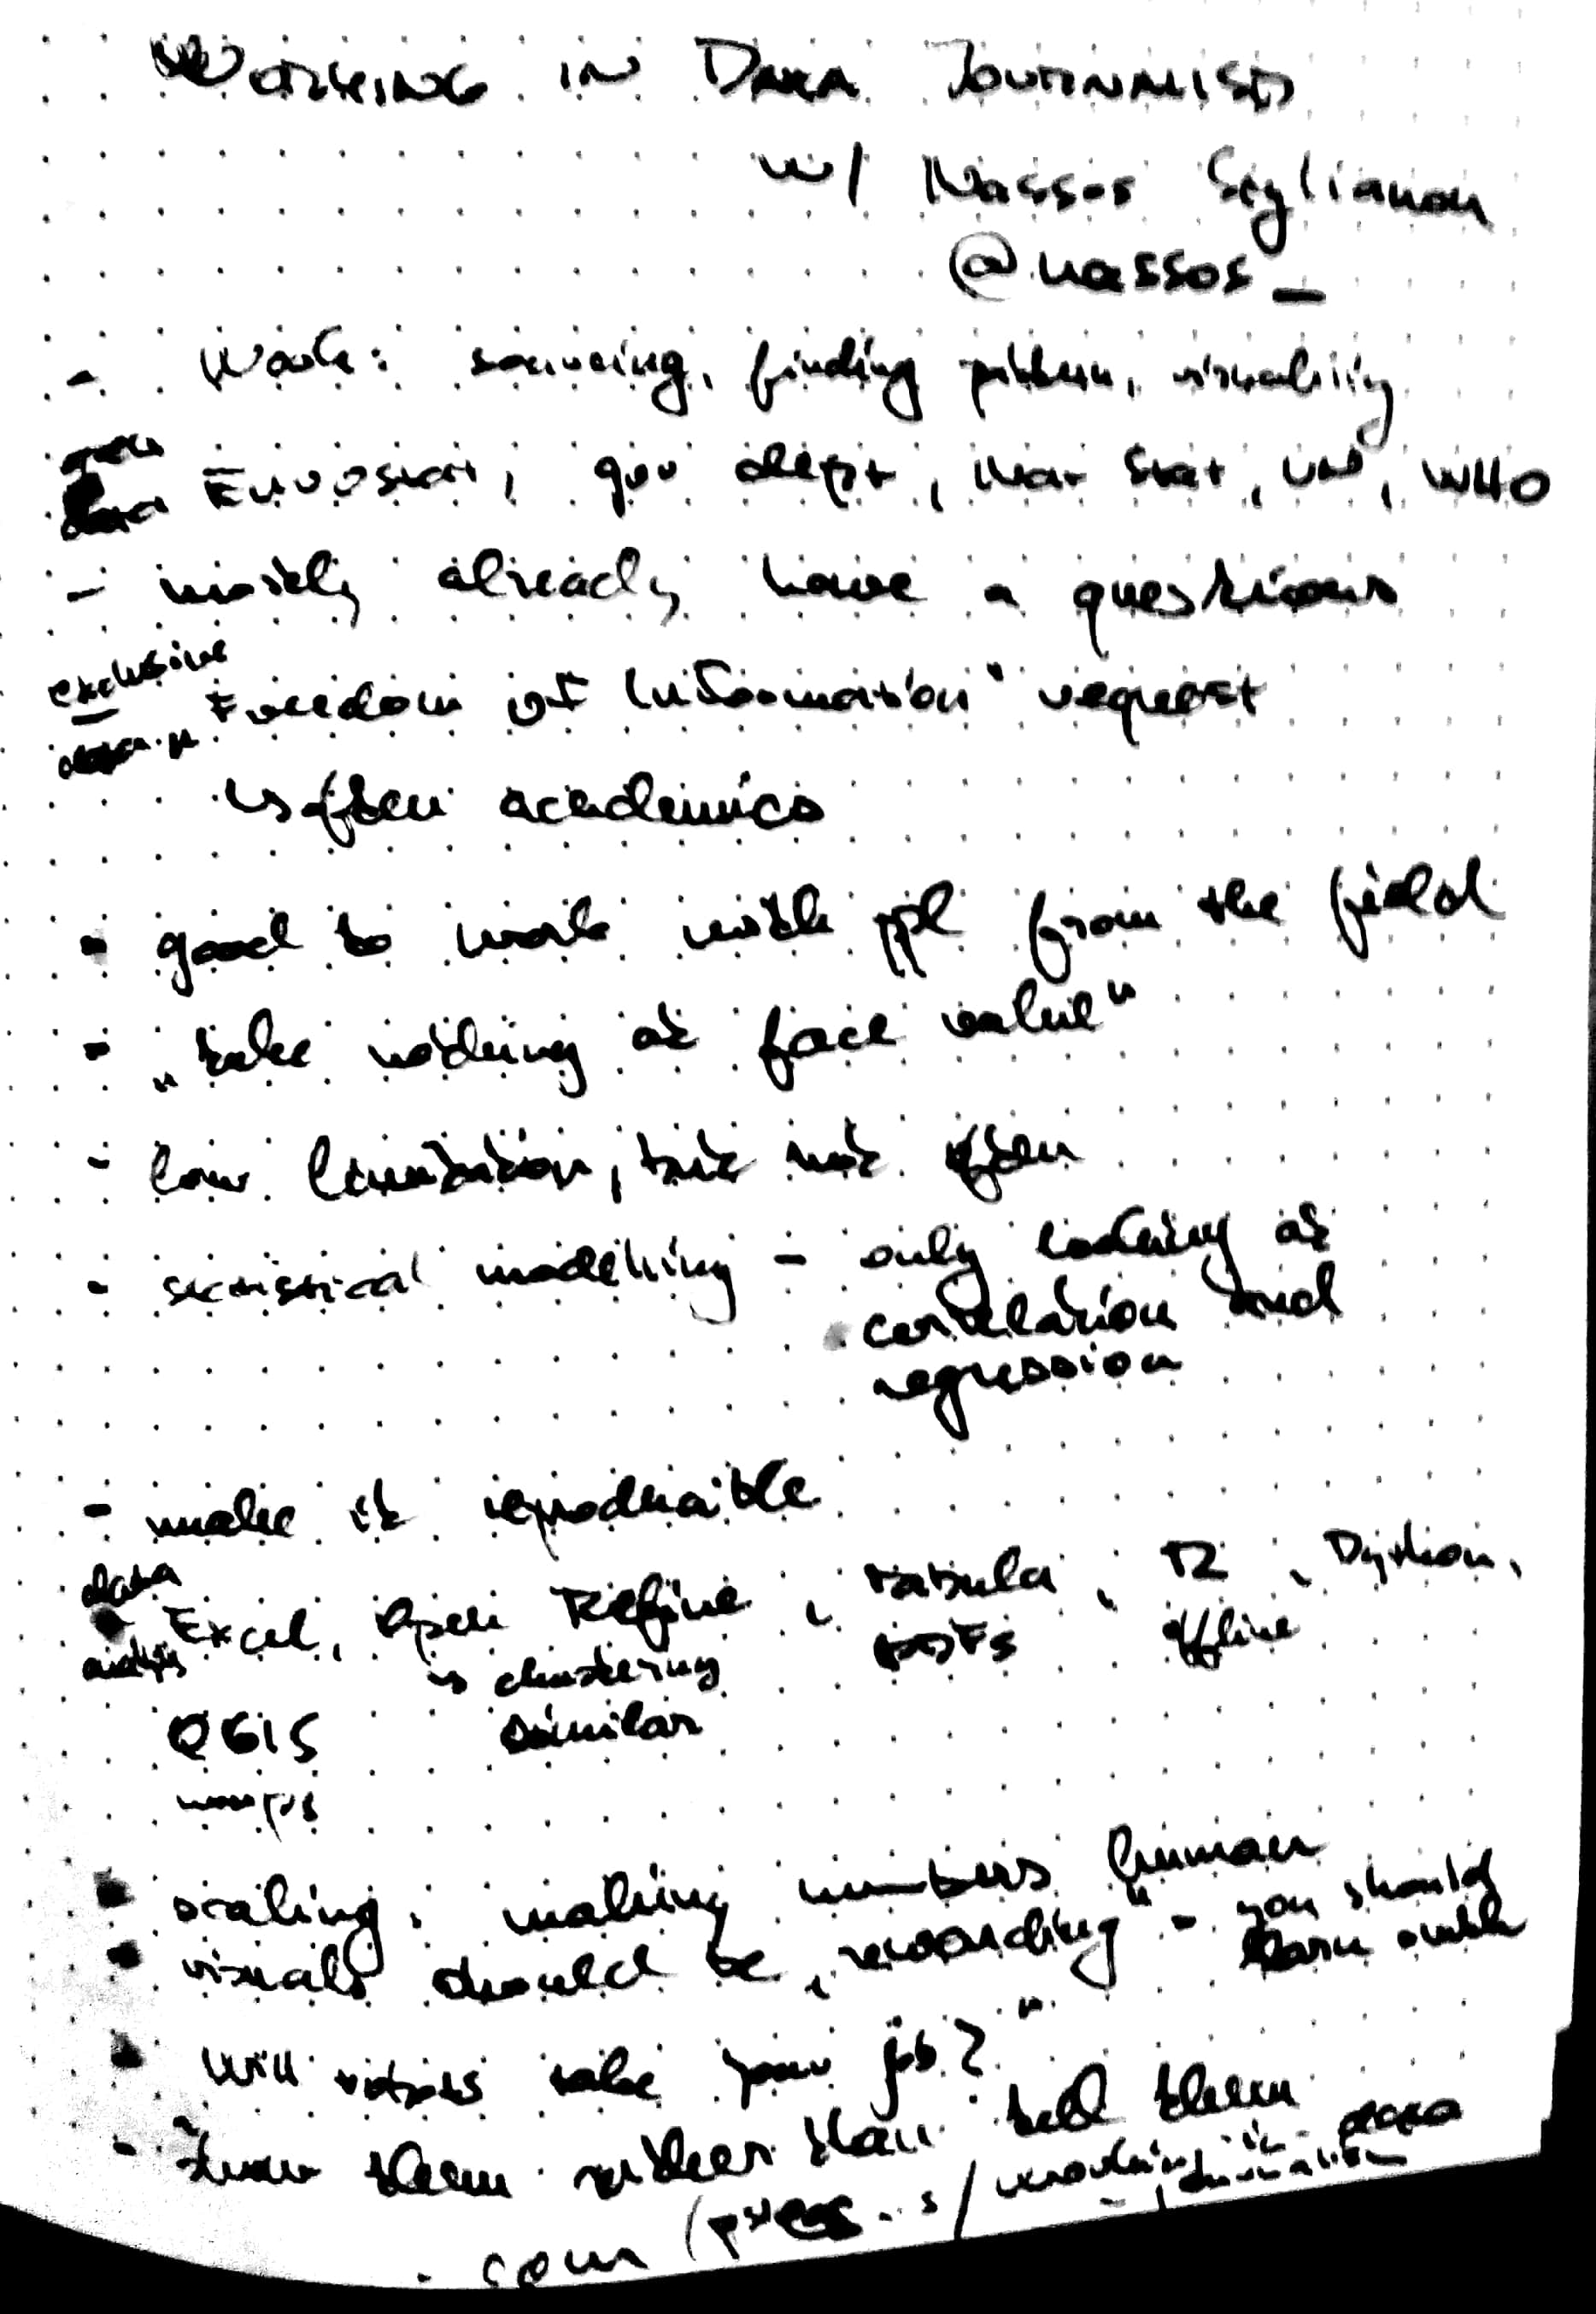 WORKING IN DATA JOURNALISM
w/ Nassos Stylianou
@nassos_
- Work: sourcing, finding pattern, visualising
data Eurostat, gov dept, Nat Stat, UN, WHO
- mostly already have a questions
exclusive
data „Freedom of Information" request
↳ often academics
- good to work with ppl from the field
- „take nothing at face value"
- low limitation, but not often
- statistical modelling - only looking at
correlation and
regression
- make it reproducible
data
analysis Excel, Open Refine, Tabula, R, Python,
↳ clustering PDFs offline
similar
QGIS
maps
- scaling, making numbers human
- visuals should be „rewarding" - you should
learn smth
- „Will robots take your job?"
- show them rather than tell them
s/working-in-data
-journalism
com